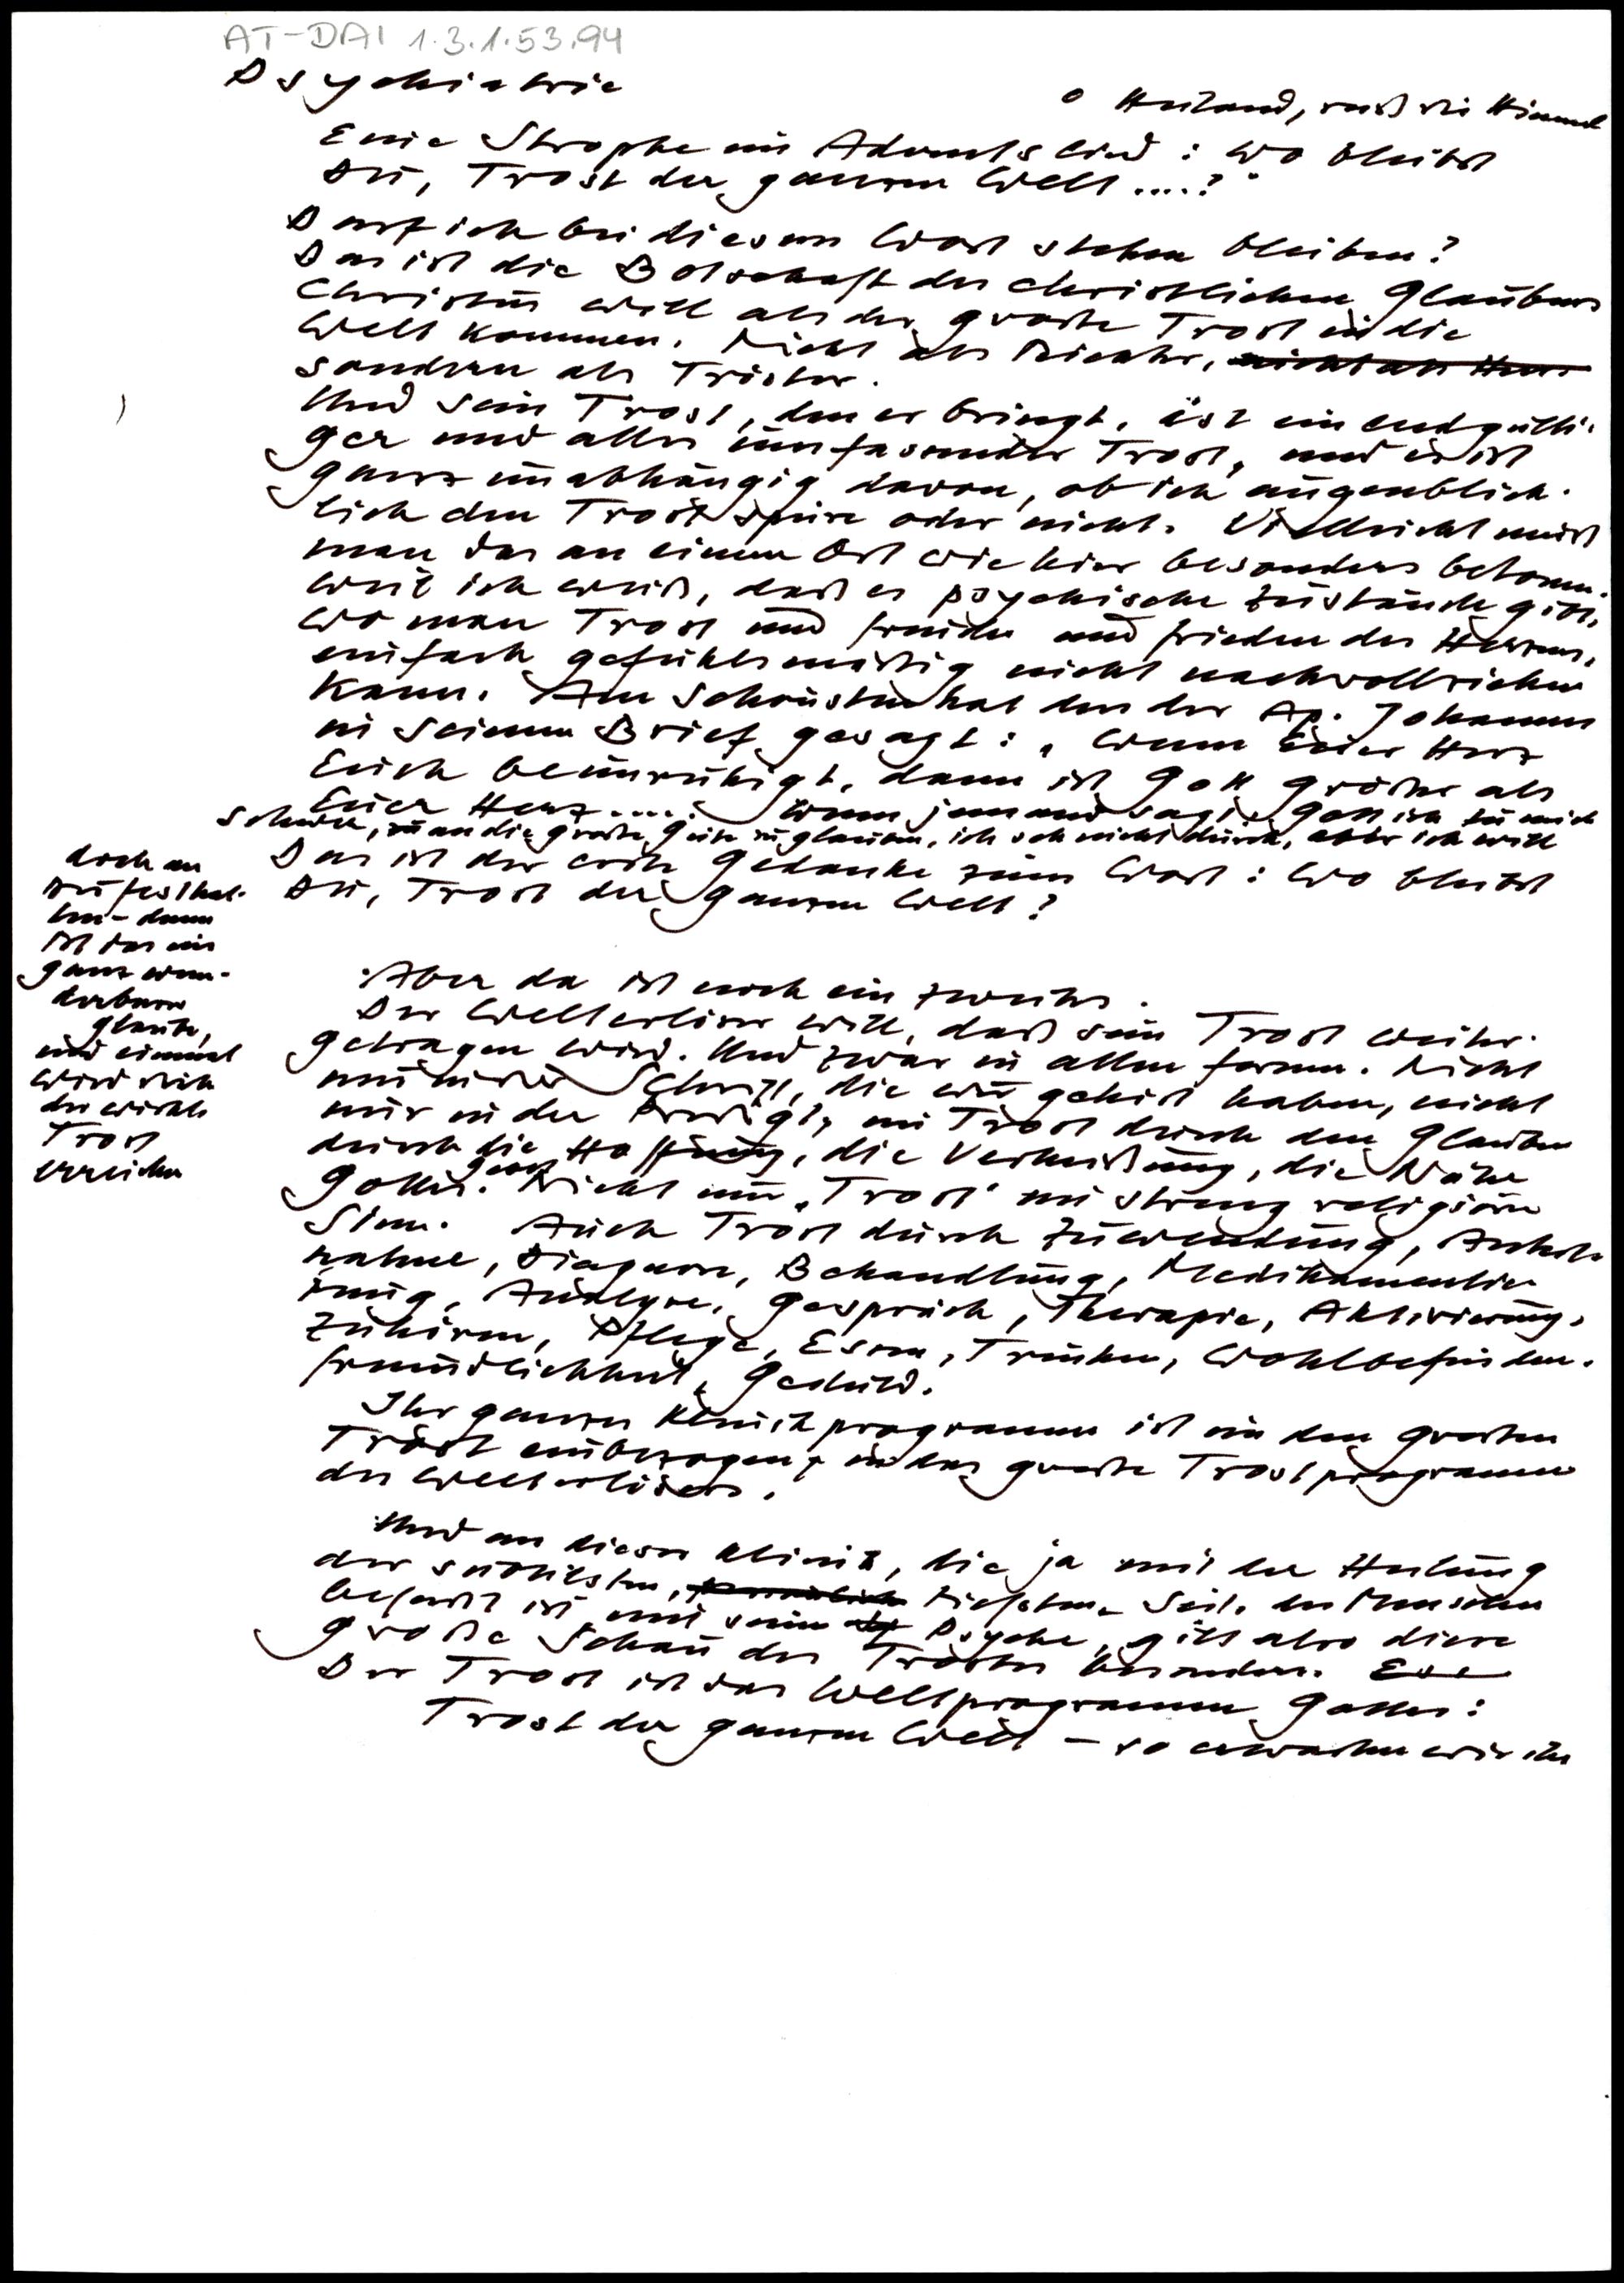 AT-DAI 1.3.1.53.94
Psychiatrie
O Heiland, reiß die Himmel
Eine Strophe im Adventslied: Wo bleibst
Du, Trost der ganzen Welt....?"
Darf ich bei diesem Wort stehen bleiben?
Das ist die Botschaft des christlichen Glaubens
Christus will als der große Trost in die
Welt kommen. Nicht als Richter, nicht als Herr
sondern als Tröster.
Und sein Trost, den er bringt, ist ein endgülti-
ger und alles umfassender Trost, und er ist
ganz unabhängig davon, ob ich augenblick-
lich den Trost spüre oder nicht. Vielleicht muß
man das an einem Ort wie hier besonders betonen.
Weil ich weiß, daß es psychische Zustände gibt,
wo man Trost und Freude und Frieden des Herzens,
einfach gefühlsmäßig nicht nachvollziehen
kann. Am schönsten hat das der Ap. Johannes
in seinem Brief gesagt: "Wenn Euer Herz
Euch beunruhigt, dann ist Gott größer als
Euer Herz....." Wenn jemand sagt, Gott ich tu mich
schwer, an die große Güte zu glauben, ich seh nicht durch, aber ich will
doch an
Dir festhal-
ten - dann
ist das ein
ganz wun-
derbarer
Glaube,
und einmal
wird dich
der wirkl.
Trost
erreichen
Das ist der erste Gedanke zum Wort: Wo bleibst
Du, Trost der ganzen Welt?
Aber da ist noch ein zweites.
Der Welterlöser will, daß sein Trost weiter-
getragen wird. Und zwar in allen Formen. Nicht
nur in der Schrift, die wir gehört haben, nicht
nur in der Predigt, im Trost durch den Glauben
durch die Hoffnung, die Verheißung, die Nähe
Gottes. Nicht nur "Trost" im streng religiösen
Sinn. Auch Trost durch Zuwendung, Anteil-
nahme, Diagnose, Behandlung, Medikamentie-
rung, Analyse, Gespräch, Therapie, Aktivierung,
Zuhören, Pflege, Essen, Trinken, Wohlbefinden,
Freundlichkeit, Geduld.
Ihr ganzes Klinikprogramm ist in den großen
Trost einbezogen, in das große Trostprogramm
des Welterlösers.
Und an dieser Klinik, die ja mit der Heilung
der sensibelsten, tiefsten Seite des Menschen
befaßt ist, mit seiner Psyche, gilt also diese
große Schau des Trostes besonders.
Der Trost ist das Weltprogramm Gottes:
Trost der ganzen Welt - so erwarten wir ihn